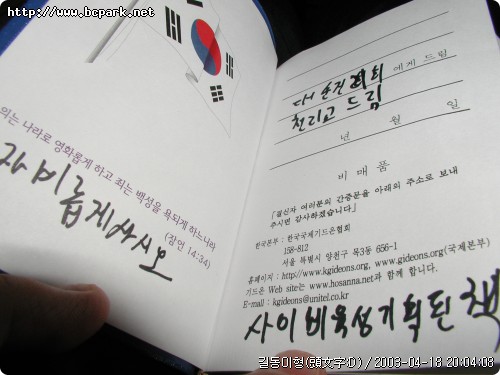 http://www.bcpark.net
의는 나라로 영화롭게 하고 죄는 백성을 욕되게 하느니라
(잠언 14:34)
자비롭게사시오
에게 드림
천리고 드림
년 월 일
비 매 품
「결신자 여러분의 간증문을 아래의 주소로 보내
주시면 감사하겠습니다」
한국본부 : 한국국제기드온협회
158-812
서울 특별시 양천구 목3동 656-1
홈페이지 : http//www.kgideons.org, www,gideons.org(국제본부)
기드온 Web site는 www.hosanna.net과 함께 합니다.
E-mail : kgideons@unitel.co.kr
사이비육성기획된 책
길동이형(頭文字:D) / 2003-04-18 20:04:03